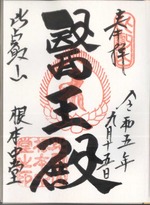 奉拝
令和五年
九月十五日
醫王殿
比叡山
根本中堂